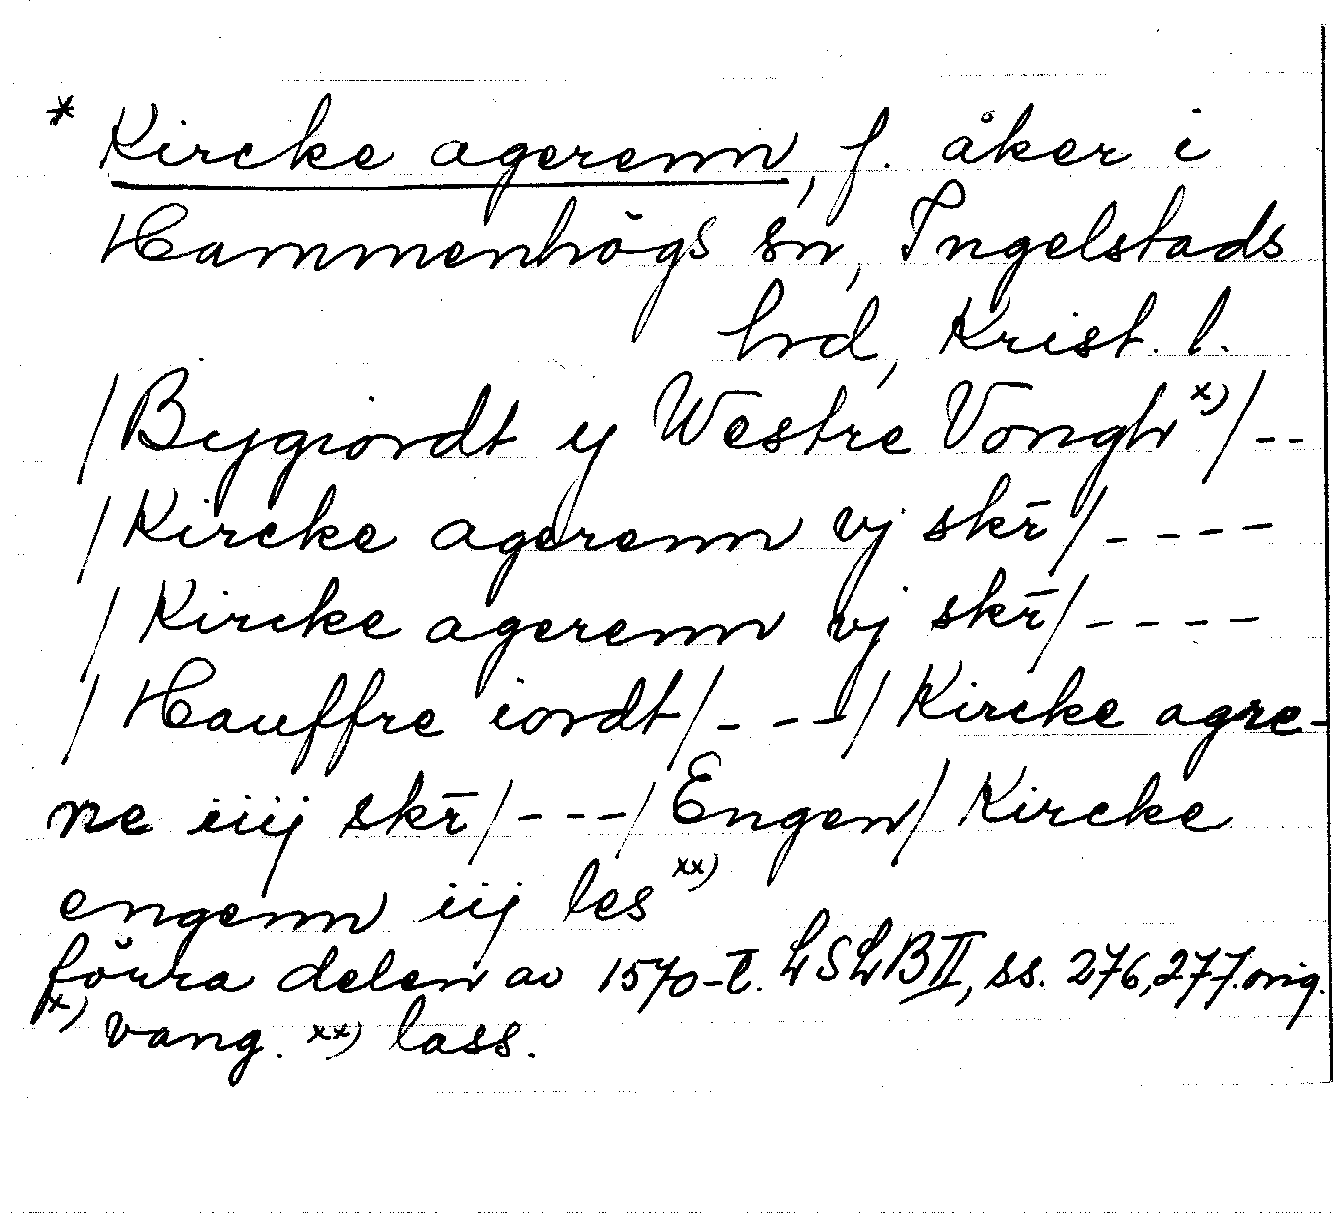 * Kircke agerenn, f. åker i
Hammenhögs sn, Ingelstads
hrd, Krist. l.
/Bygiordt y Westre Vongh x)/--
/Kircke agerenn vj skr̄/----
/Kircke agerenn vj skr̄/----
/Hauffre iordt/---/Kircke agre-
ne iiij skr̄/---/Engen/Kircke
engenn iij les xx)
förra delen av 1570-t. LSLB II, ss. 276, 277. orig.
x) vang. xx) lass.